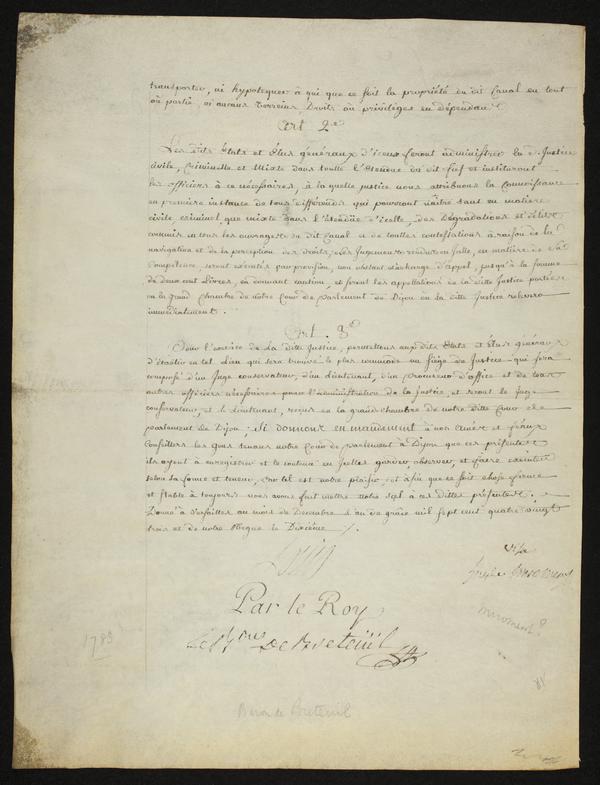 transporter, ni hypotequer à qui que ce soit la propriété du dit Canal en tout
ou partie, ni aucuns Terreins, Droits ou privilèges en dépendant
Art. 2e
Les dits États et Élus généraux d'iceux feront administrer la Justice
Civile, Criminelle et Mixte dans toutte l'Étendue du dit fief et institueront
les officiers à ce nécéssaires, à la quelle justice nous attribuons la Connoissance
en premiere instance de tous différends qui pourront naître tant en matiere
civile, criminel, que mixte dans l'étendüe d'icelle, des dégradations et délits
commis en tous les ouvrages du dit Canal et de touttes contestations à raison de la
navigation et de la perception des droits; Les Jugements rendus en icelle, en matiere de sa
Compétence, seront éxécutés par provision, non obstant et sans charge d'appel, jusqu'à la somme
de deux cent Livres, en donnant caution, et seront les appellations de la ditte Justice portées
en la grand Chambre de notre Cour de Parlement de Dijon où la ditte Justice relevera
immédiatement.
Art. 3e
Pour l'exercice de la ditte Justice, permettons aux dits États et Élus généraux
d'établir en tel Lieu qui sera trouvé le plus commode un siége de Justice qui sera
composé d'un Juge conservateur, d'un Lieutenant, d'un procureur d'office et de tous
autres officiers nécéssaires pour l'administration de la Justice, et seront le Juge
conservateur, et le Lieutenant, reçus en la grand chambre de notre ditte Cour de
parlement de Dijon; Si donnons en mandement à nos amés et féaux
Conseillers les gens tenans notre Cour de parlement à Dijon que ces présentes
ils ayent à enregistrer et le contenu en Icelles garder, observer, et faire exécuter
selon sa forme et teneur, Car tel est notre plaisir, et afin que ce soit chose ferme
et stable à toujours nous avons fait mettre notre scel à ces dittes présentes.
Donné à Versailles au mois de Decembre l'an de grâce mil sept cent quatre vingt
trois et de notre Regne le Dixiéme
Louis
Visa
Par le Roy
Le Bon De Breteüil
miromenil?
1783
Baron de Breteuil